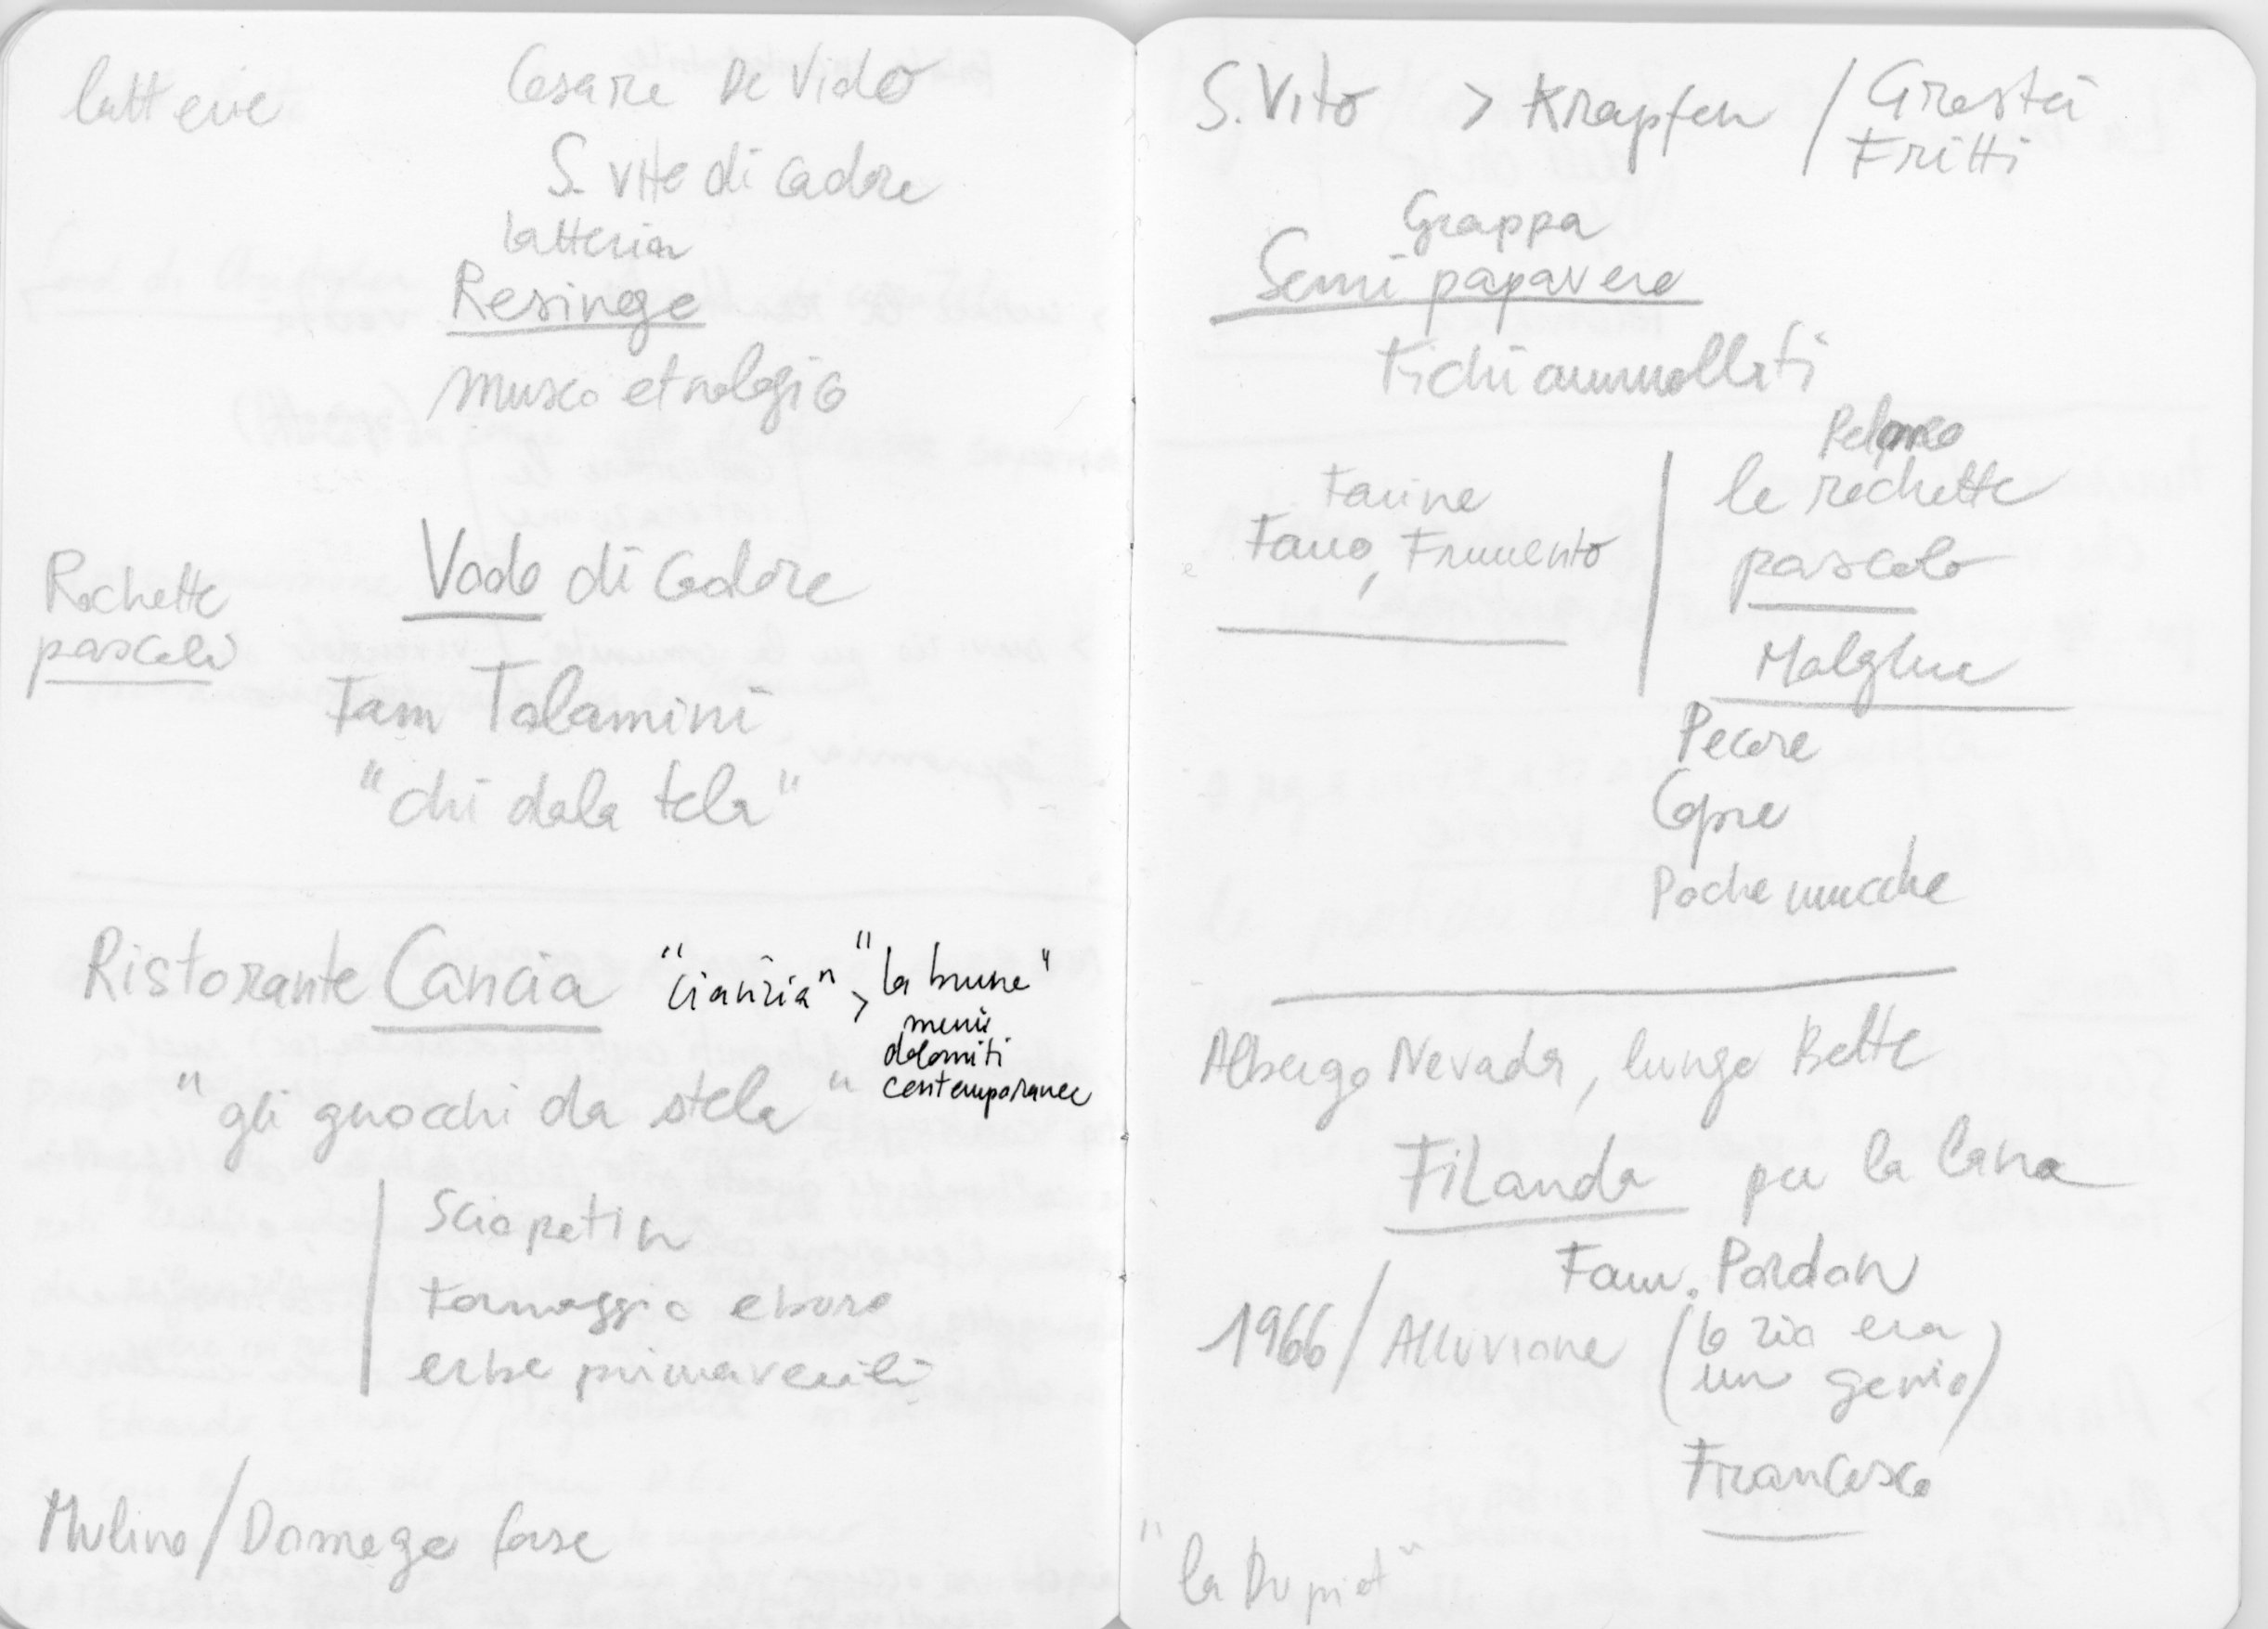 latterie
Cesare De Vido
S. Vito di Cadore
latteria
Resinego
museo etnologico
Vodo di Cadore
Rochette
pascolo
Fam Talamini
"chi dala tela"
Ristorante Cancia
"Cianzia" >
"la brune"
menù
dolomiti
contemporanee
"gli gnocchi da stela"
Sciopetin
Formaggio e burro
erbe primaverili
Mulino / Domegge forse
S. Vito > Krapfen / Crostoi
Fritti
Grappa
Semi papavero
Fichi ammollati
Farine
Farro, Frumento
Pelmo
le rochette
pascolo
Malghe
Pecore
Capre
Poche mucche
Albergo Nevada, lungo Boite
FiLanda per la lana
Fam. Pordon
1966 / Alluvione (lo zio era
un genio)
Francesco